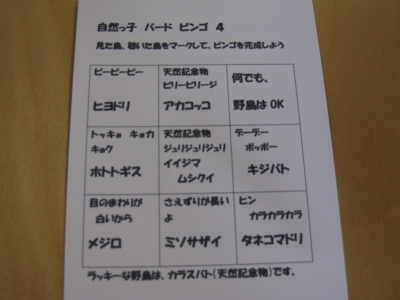 自然っ子 バード ビンゴ 4
見た鳥、聴いた鳥をマークして、ビンゴを完成しよう
ピーピーピー
ヒヨドリ
天然記念物
ビリービリージ
アカコッコ
何でも、
野鳥は OK
トッキョ キョカ
キョク
ホトトギス
天然記念物
ジュリジュリジュリ
イイジマ
ムシクイ
デーデー
ポッポー
キジバト
目のまわりが
白いから
メジロ
さえずりが長い
よ
ミソサザイ
ヒン
カラカラカラ
タネコマドリ
ラッキーな野鳥は、カラスバト(天然記念物)です。